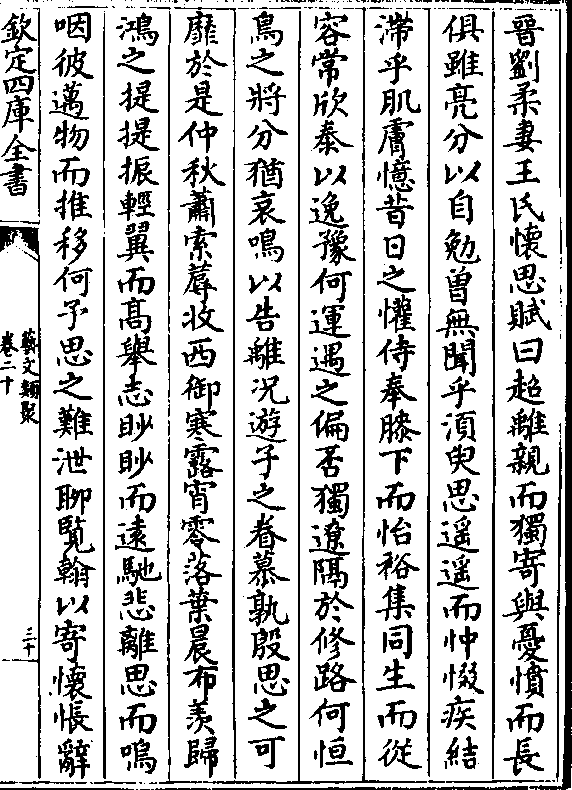 晉劉柔妻王氏懷思賦曰超離親而獨寄與憂憤而長
俱雖亮分以自勉曾無聞乎湏臾思遥遥而忡惙疾結
滯乎肌膚憶昔日之懽侍奉膝下而怡裕集同生而從
容常欣泰以逸豫何運遇之偏否獨遼隔於修路何恒
鳥之將分猶哀鳴以告離况遊子之眷慕孰殷思之可
靡於是仲秋蕭索蓐收西御寒露宵零落葉晨布羡歸
鴻之提提振輕翼而高舉志眇眇而逺馳悲離思而嗚
咽彼邁物而推移何予思之難泄聊覽翰以寄懷悵辭
欽定四庫全書
藝文類聚
卷三十
三十